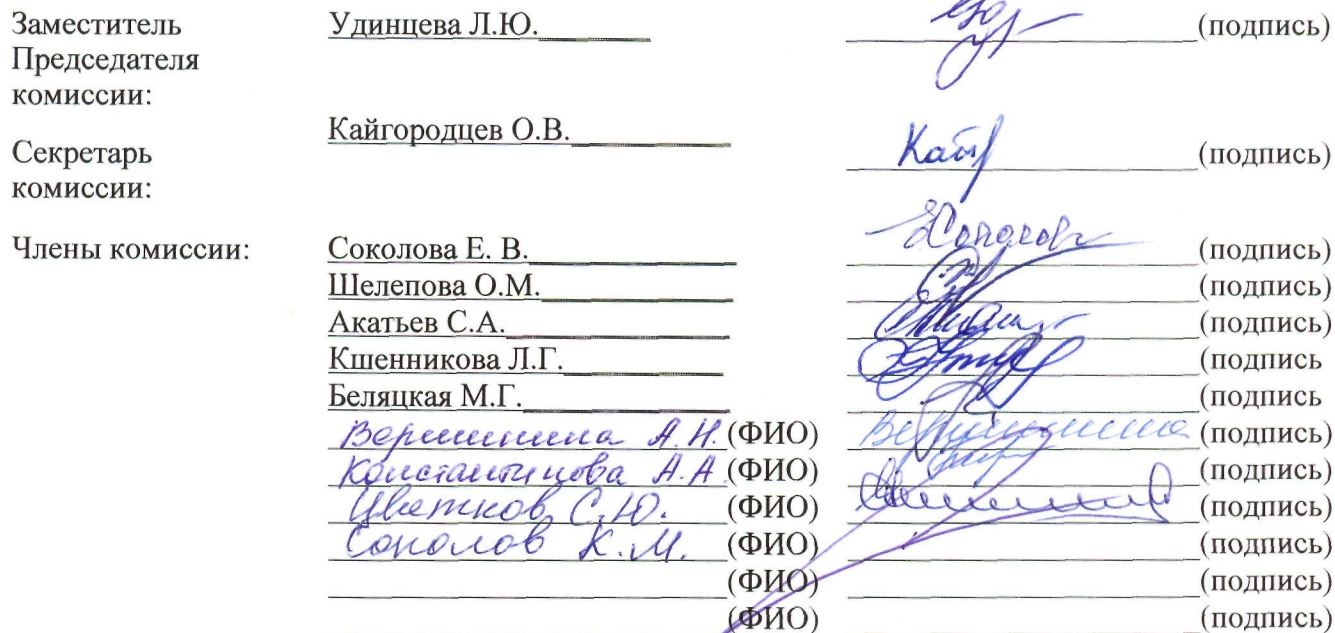 Заместитель Удинцева Л.Ю. (подпись)
Председателя
комиссии:
Кайгородцев О.В.
Секретарь (подпись)
комиссии:
Члены комиссии: Соколова Е. В. Соколова (подпись)
Шелепова О.М. (подпись)
Акатьев С.А. (подпись)
Кшенникова Л.Г. (подпись
Беляцкая М.Г. (подпись
Вершинина А.Н. (ФИО) (подпись)
Константинова А.А (ФИО) (подпись)
Цветков С.Ю. (ФИО) (подпись)
Соколов К.М. (ФИО) (подпись)
(ФИО) (подпись)
(ФИО) (подпись)